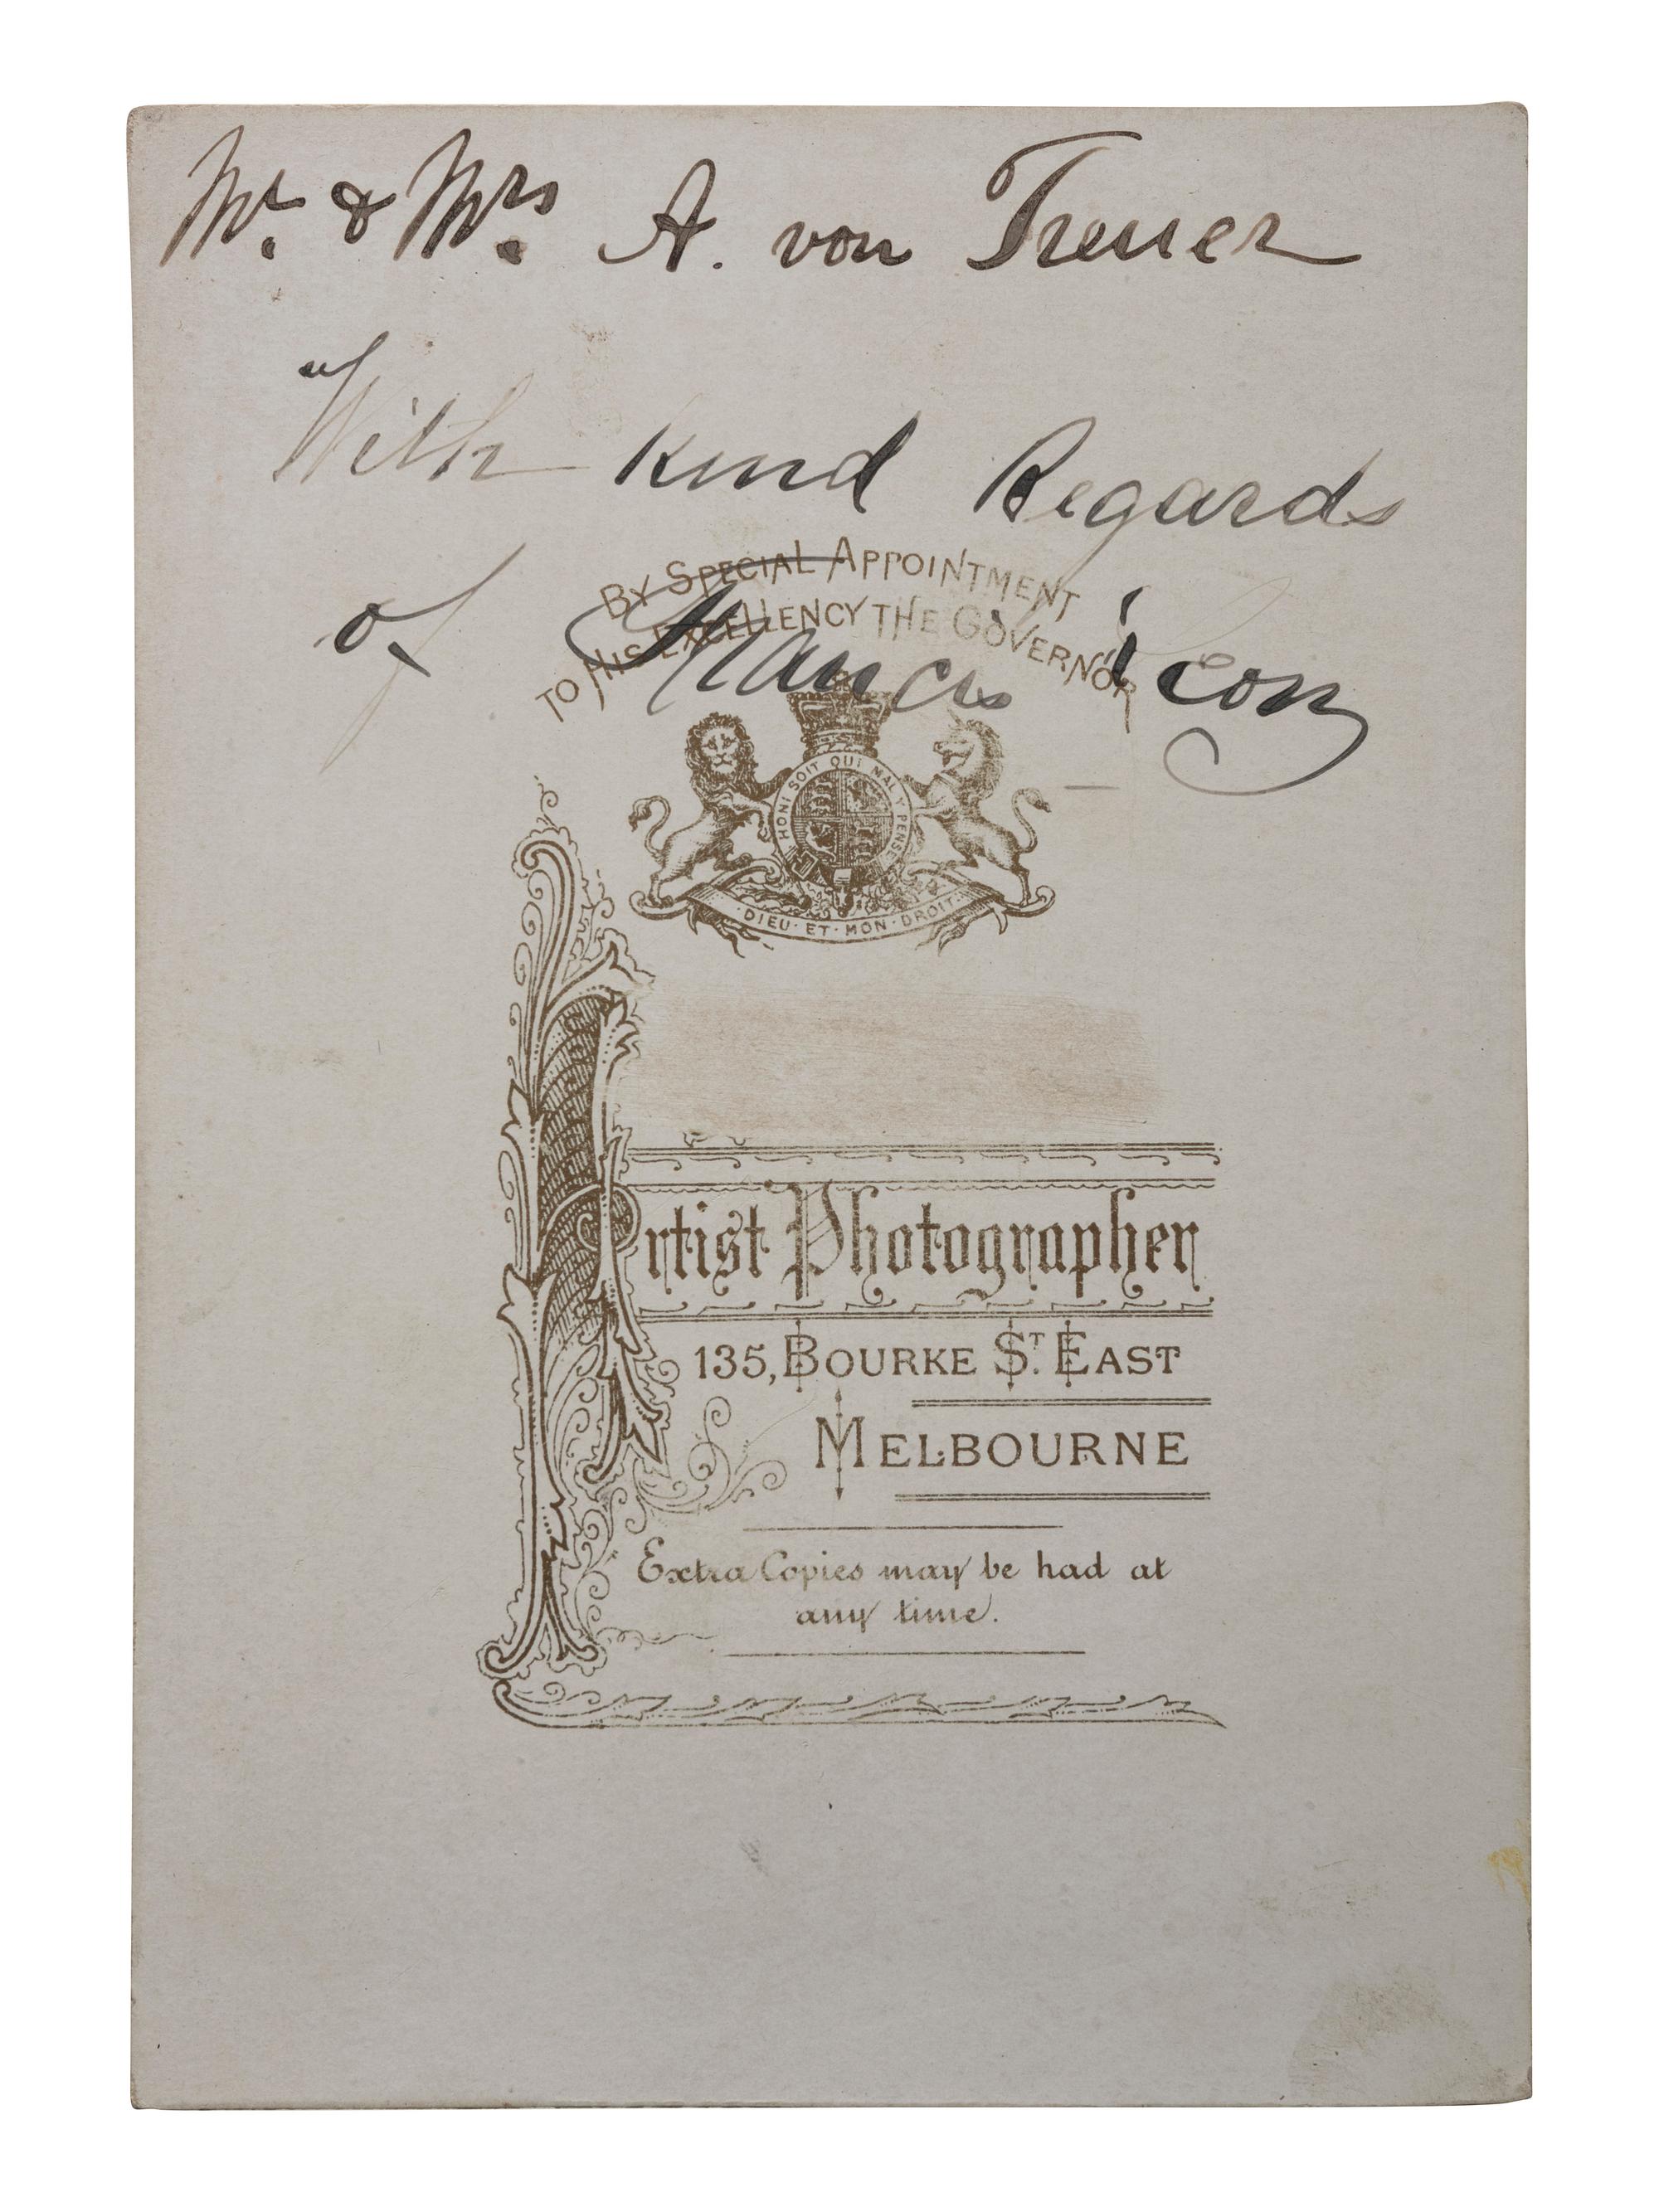 Mr. & Mrs. A. von Treuer
With kind Regards
of Francis Leon
BY SPECIAL APPOINTMENT
TO HIS EXCELLENCY THE GOVERNOR
HONI SOIT QUI MAL Y PENSE
DIEU · ET · MON · DROIT
Artist Photographer
135, BOURKE ST. EAST
MELBOURNE
Extra Copies may be had at
any time.